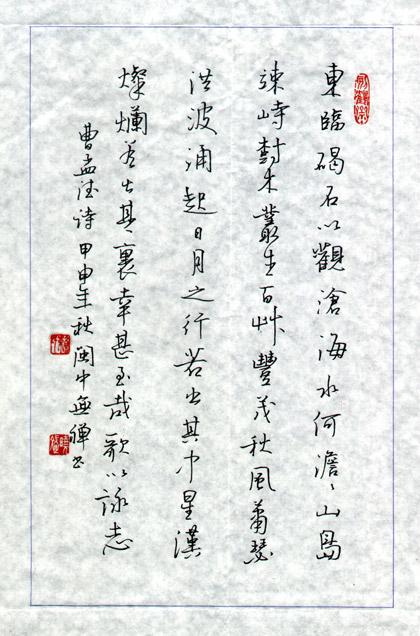 東臨碣石以觀滄海水何澹〻山島
竦峙樹木叢生百艸豐茂秋風蕭瑟
洪波涌起日月之行若出其中星漢
燦爛若出其裏幸甚至哉歌以詠志
曹孟德诗甲申年秋闽中無禪书